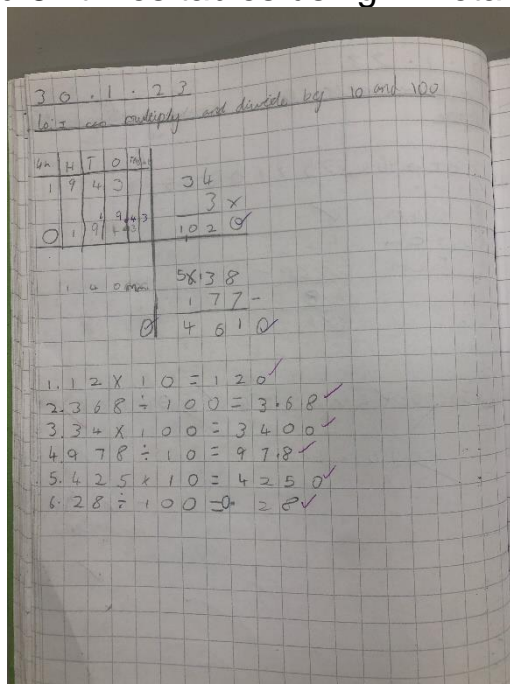 30.1.23
Lo: I can multiply and divide by 10 and 100
H T O
1 9 4 3
34
3 x
1020
140mm
5638
177-
04610
1. 12 x 10 = 120
2. 368 ÷ 100 = 3.68
3. 34 x 100 = 3400
4. 978 ÷ 10 = 97.8
5. 425 x 10 = 4250
6. 28 ÷ 100 = 0.28